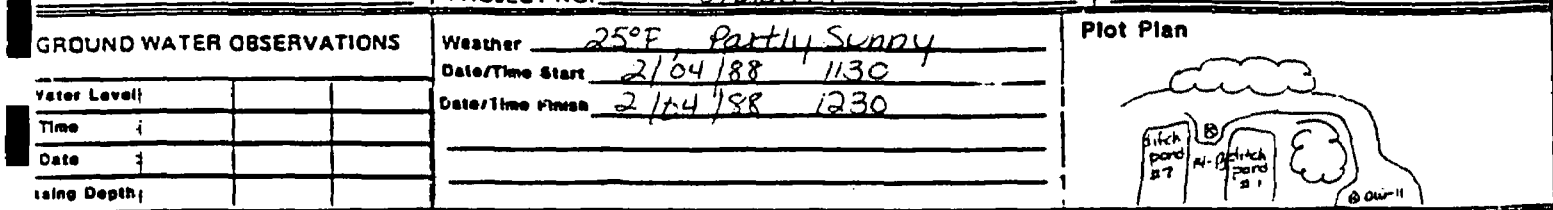 PROJECT NO.
GROUND WATER OBSERVATIONS
Water Level
Time
Date
Casing Depth
Weather 25°F, Partly Sunny
Date/Time Start 2/04/88 1130
Date/Time Finish 2/04/88 1230
Plot Plan
ditch
pond
#
ditch
pond
#1
OW-11